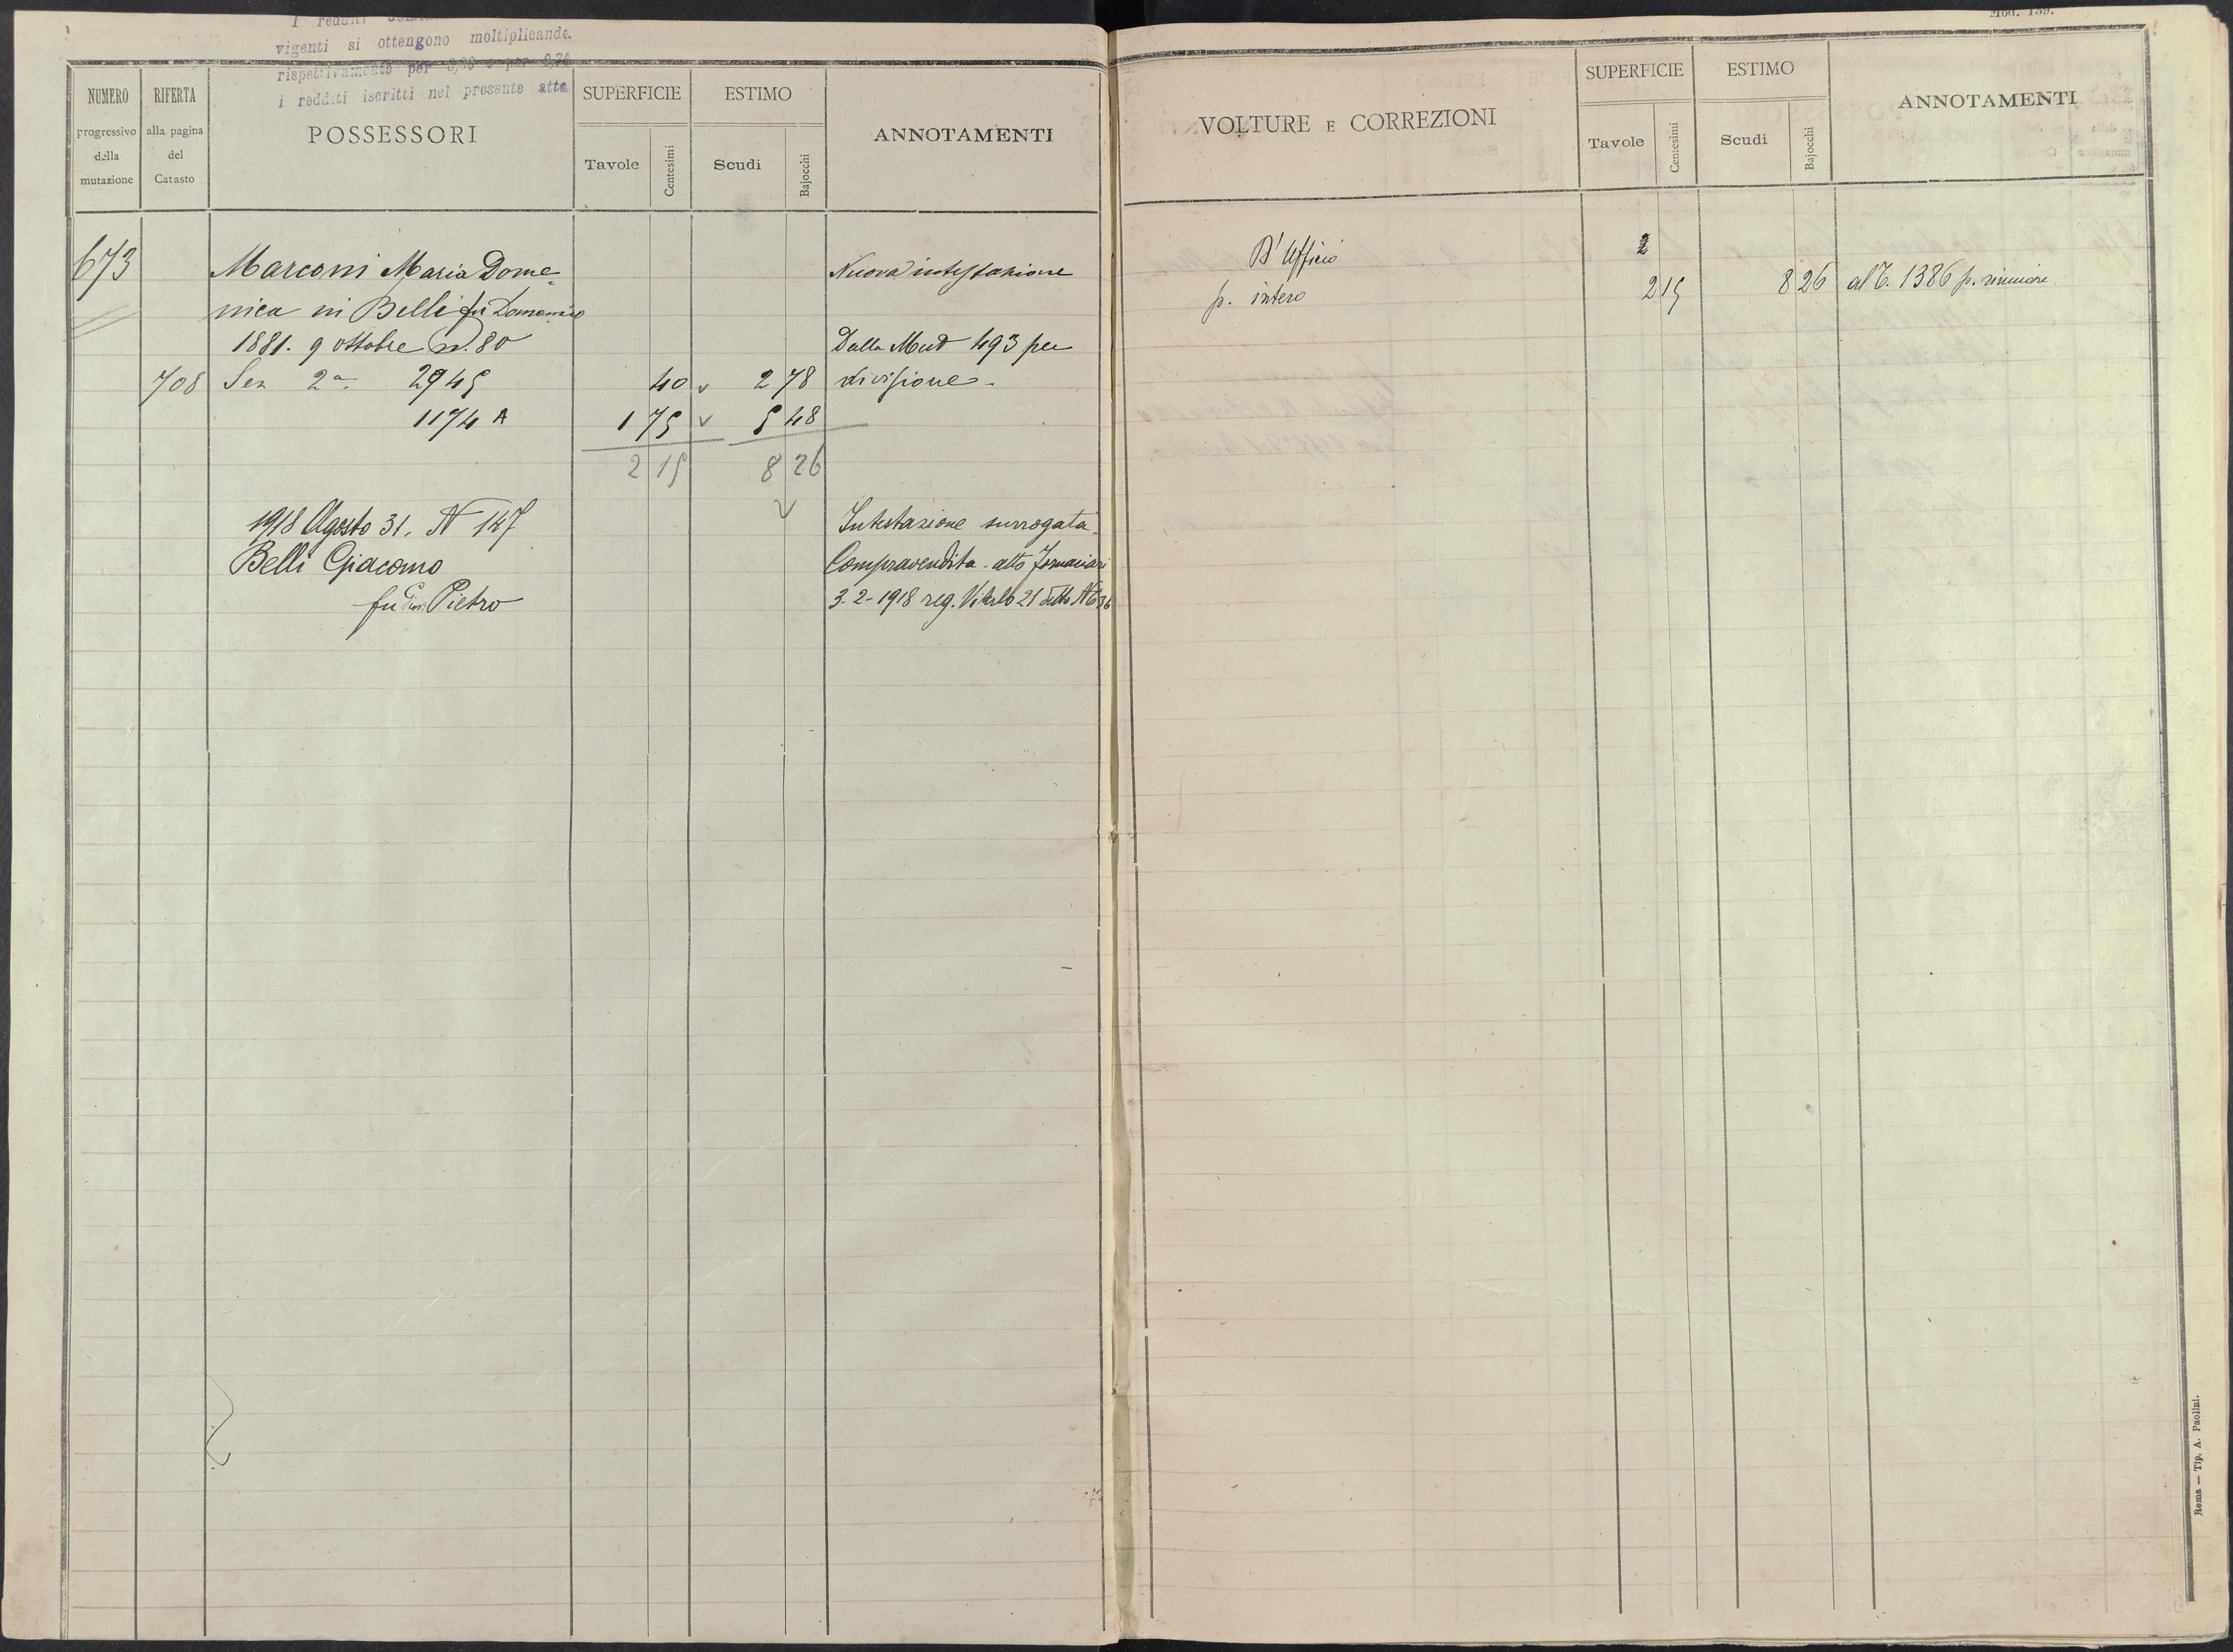 vigenti si ottengono moltiplicando
rispettivamente per 0,90 e per 0,70
i redditi iscritti nel presente atto
NUMERO
progressivo
della
mutazione
RIFERTA
alla pagina
del
Catasto
POSSESSORI
SUPERFICIE
Tavole
Centesimi
ESTIMO
Scudi
Bajocchi
ANNOTAMENTI
673
Marconi Maria Dome-
nica in Belli fu Domenico
1881. 9 ottobre N. 80
708 Sez 2a 2945 40 v 2 78
1174 A 1 75 v 5 48
2 15 8 26
Nuova intestazione
Dalla Mut 493 per
divisione -
1918 Agosto 31. N 147
Belli Giacomo
fu Giov: Pietro
Intestazione surrogata
Compravendita - atto
3-2-1918 reg. Viterbo 21 detto N 636
Mod. 139.
VOLTURE E CORREZIONI
SUPERFICIE
Tavole
Centesimi
ESTIMO
Scudi
Bajocchi
ANNOTAMENTI
D'Ufficio 2
p. intero 2 15 8 26 al T. 1386 p. riunione
Roma — Tip. A. Paolini.